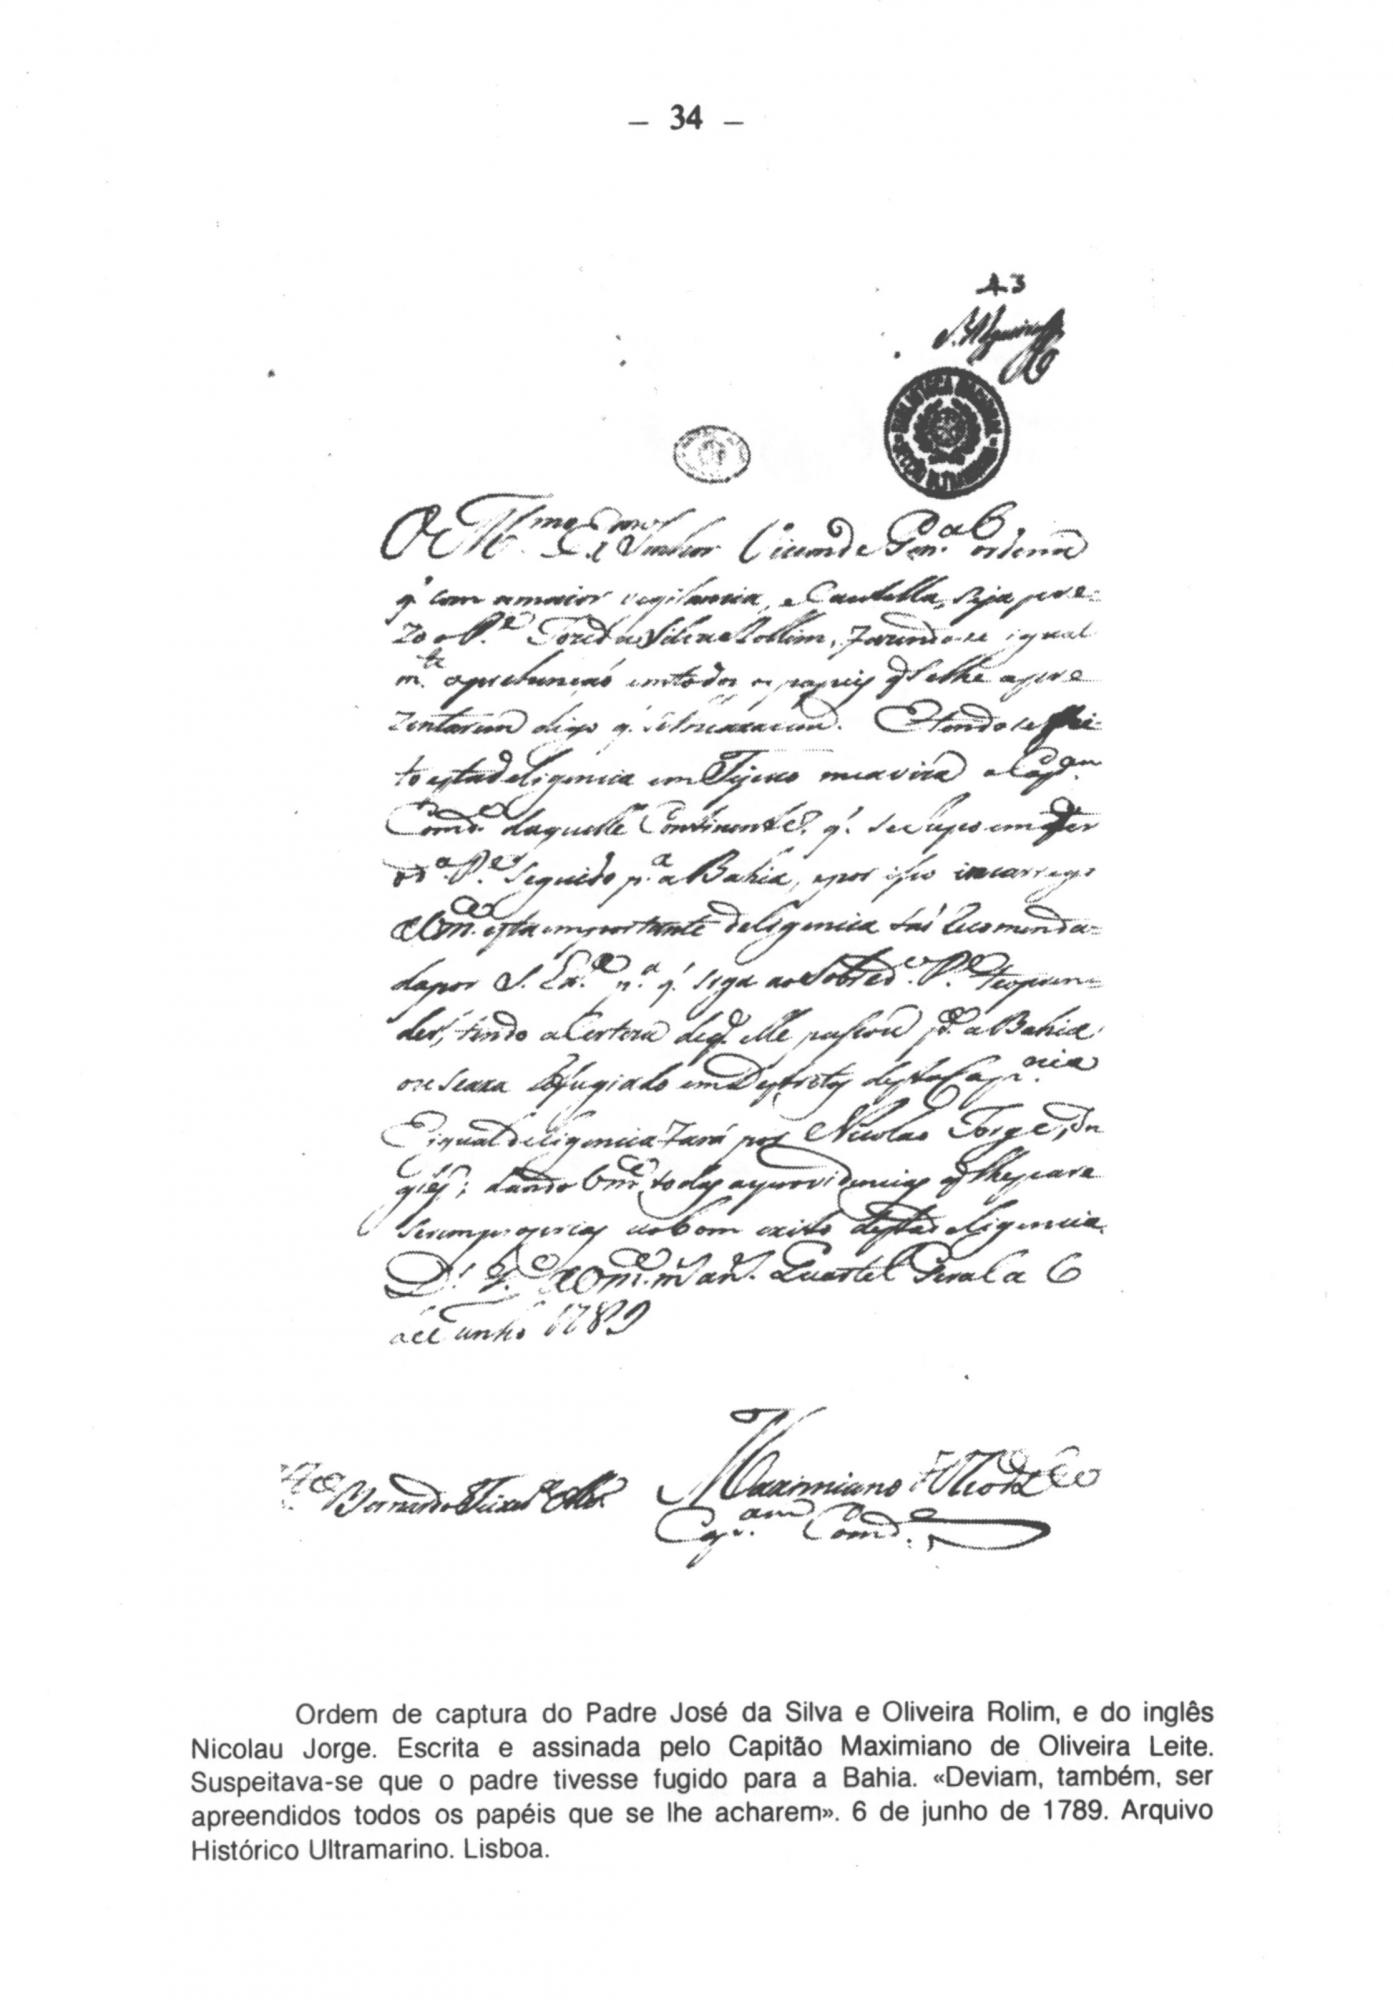 — 34 —
43
BIBLIOTECA NACIONAL
SECÇÃO ULTRAMARINA
O Ill.mo e Ex.mo Senhor Visconde Gen.al ordena
q' com a maior vegilancia, e Cautella, seja pre=
zo o P.e Jozé da Silva e Rollim, fazendo-se igual
m.te aprehenção em todos os papeis q' se lhe apre
zentarem digo q' se lhe acharem. E tendo-se fei=
to esta deligencia em Tejuco me aviza o Cap.am
Comd.e daquelle Continente, q' se supoem ter
o d.o P.e seguido p.a a Bahia, e por isso incarrego
a Vm.ce esta importante deligencia tão recomenda=
da por S. Ex.a p.a q' siga ao Sobred.o P.e te o pren=
der, tendo a Certeza de q' elle passou p.a a Bahia
ou se axa Refugiado em Destritos desta Cap.nia
E igual deligencia fará por Nicolao Jorge, In
gles; dando Vm.ce todas as providencias q' lhe pare
serem percizas ao bom exito desta deligencia.
D.s g.e a Vm.ce m.s an.s Quartel Geral a 6
de Junho 1789
Bernardo Teix.ra
Maximiano de Olivr.a Leite
Cap.am Comd.e
Ordem de captura do Padre José da Silva e Oliveira Rolim, e do inglês
Nicolau Jorge. Escrita e assinada pelo Capitão Maximiano de Oliveira Leite.
Suspeitava-se que o padre tivesse fugido para a Bahia. «Deviam, também, ser
apreendidos todos os papéis que se lhe acharem». 6 de junho de 1789. Arquivo
Histórico Ultramarino. Lisboa.